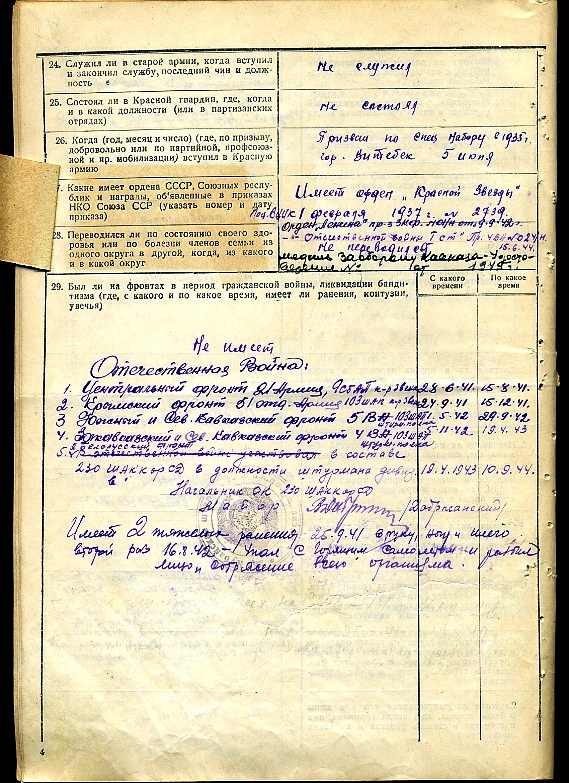 24. Служил ли в старой армии, когда вступил
и закончил службу, последний чин и долж-
ность
Не служил
25. Состоял ли в Красной гвардии, где, когда
и в какой должности (или в партизанских
отрядах)
Не состоял
26. Когда (год, месяц и число) (где, по призыву,
добровольно или по партийной, профсоюз-
ной и пр. мобилизации) вступил в Красную
армию
Призван по спец набору в 1935г.
гор. Витебск 5 июля
7. Какие имеет ордена СССР, Союзных респу-
блик и награды, объявленные в приказах
НКО Союза ССР (указать номер и дату
приказа)
Имеет орден „Красной Звезды"
1 февраля 1937 г. № 2739
Орден „Ленина"
Отечественной войны I ст
15.6.44
28. Переводился ли по состоянию своего здо-
ровья или по болезни членов семьи из
одного округа в другой, когда, из какого
и в какой округ
Не переводился
медаль За оборону Кавказа
29. Был ли на фронтах в период гражданской войны, ликвидации банди-
тизма (где, с какого и по какое время, имеет ли ранения, контузии,
увечья)
С какого
времени
По какое
время
Не имеет
Отечественная Война:
1. Центральный фронт 21 Армия, 28.6.41. 15.8.41.
2. Крымский фронт 51 отд. Армия 103 шап 9.41 15.12.41.
3 Южный и Сев. Кавказский фронт 5 ВА 103 шап 5.42 29.9.42.
4. Закавказский и Сев. Кавказский фронт 4 ВА 103 шап 11.42 19.4.43
2 Белорусский фронт
5. в составе
230 ШАККОРСД в должности штурмана дивиз. 19.4.1943 10.9.44.
Начальник ОК 230 ШАККОРСД
Майор /Добржанский/
Имеет 2 тяжелых ранения 26.9.41 в руку, ногу и плечо
второй раз 16.8.42 – упал с горящим самолетом и разбил
лицо, сотрясение всего организма.
4